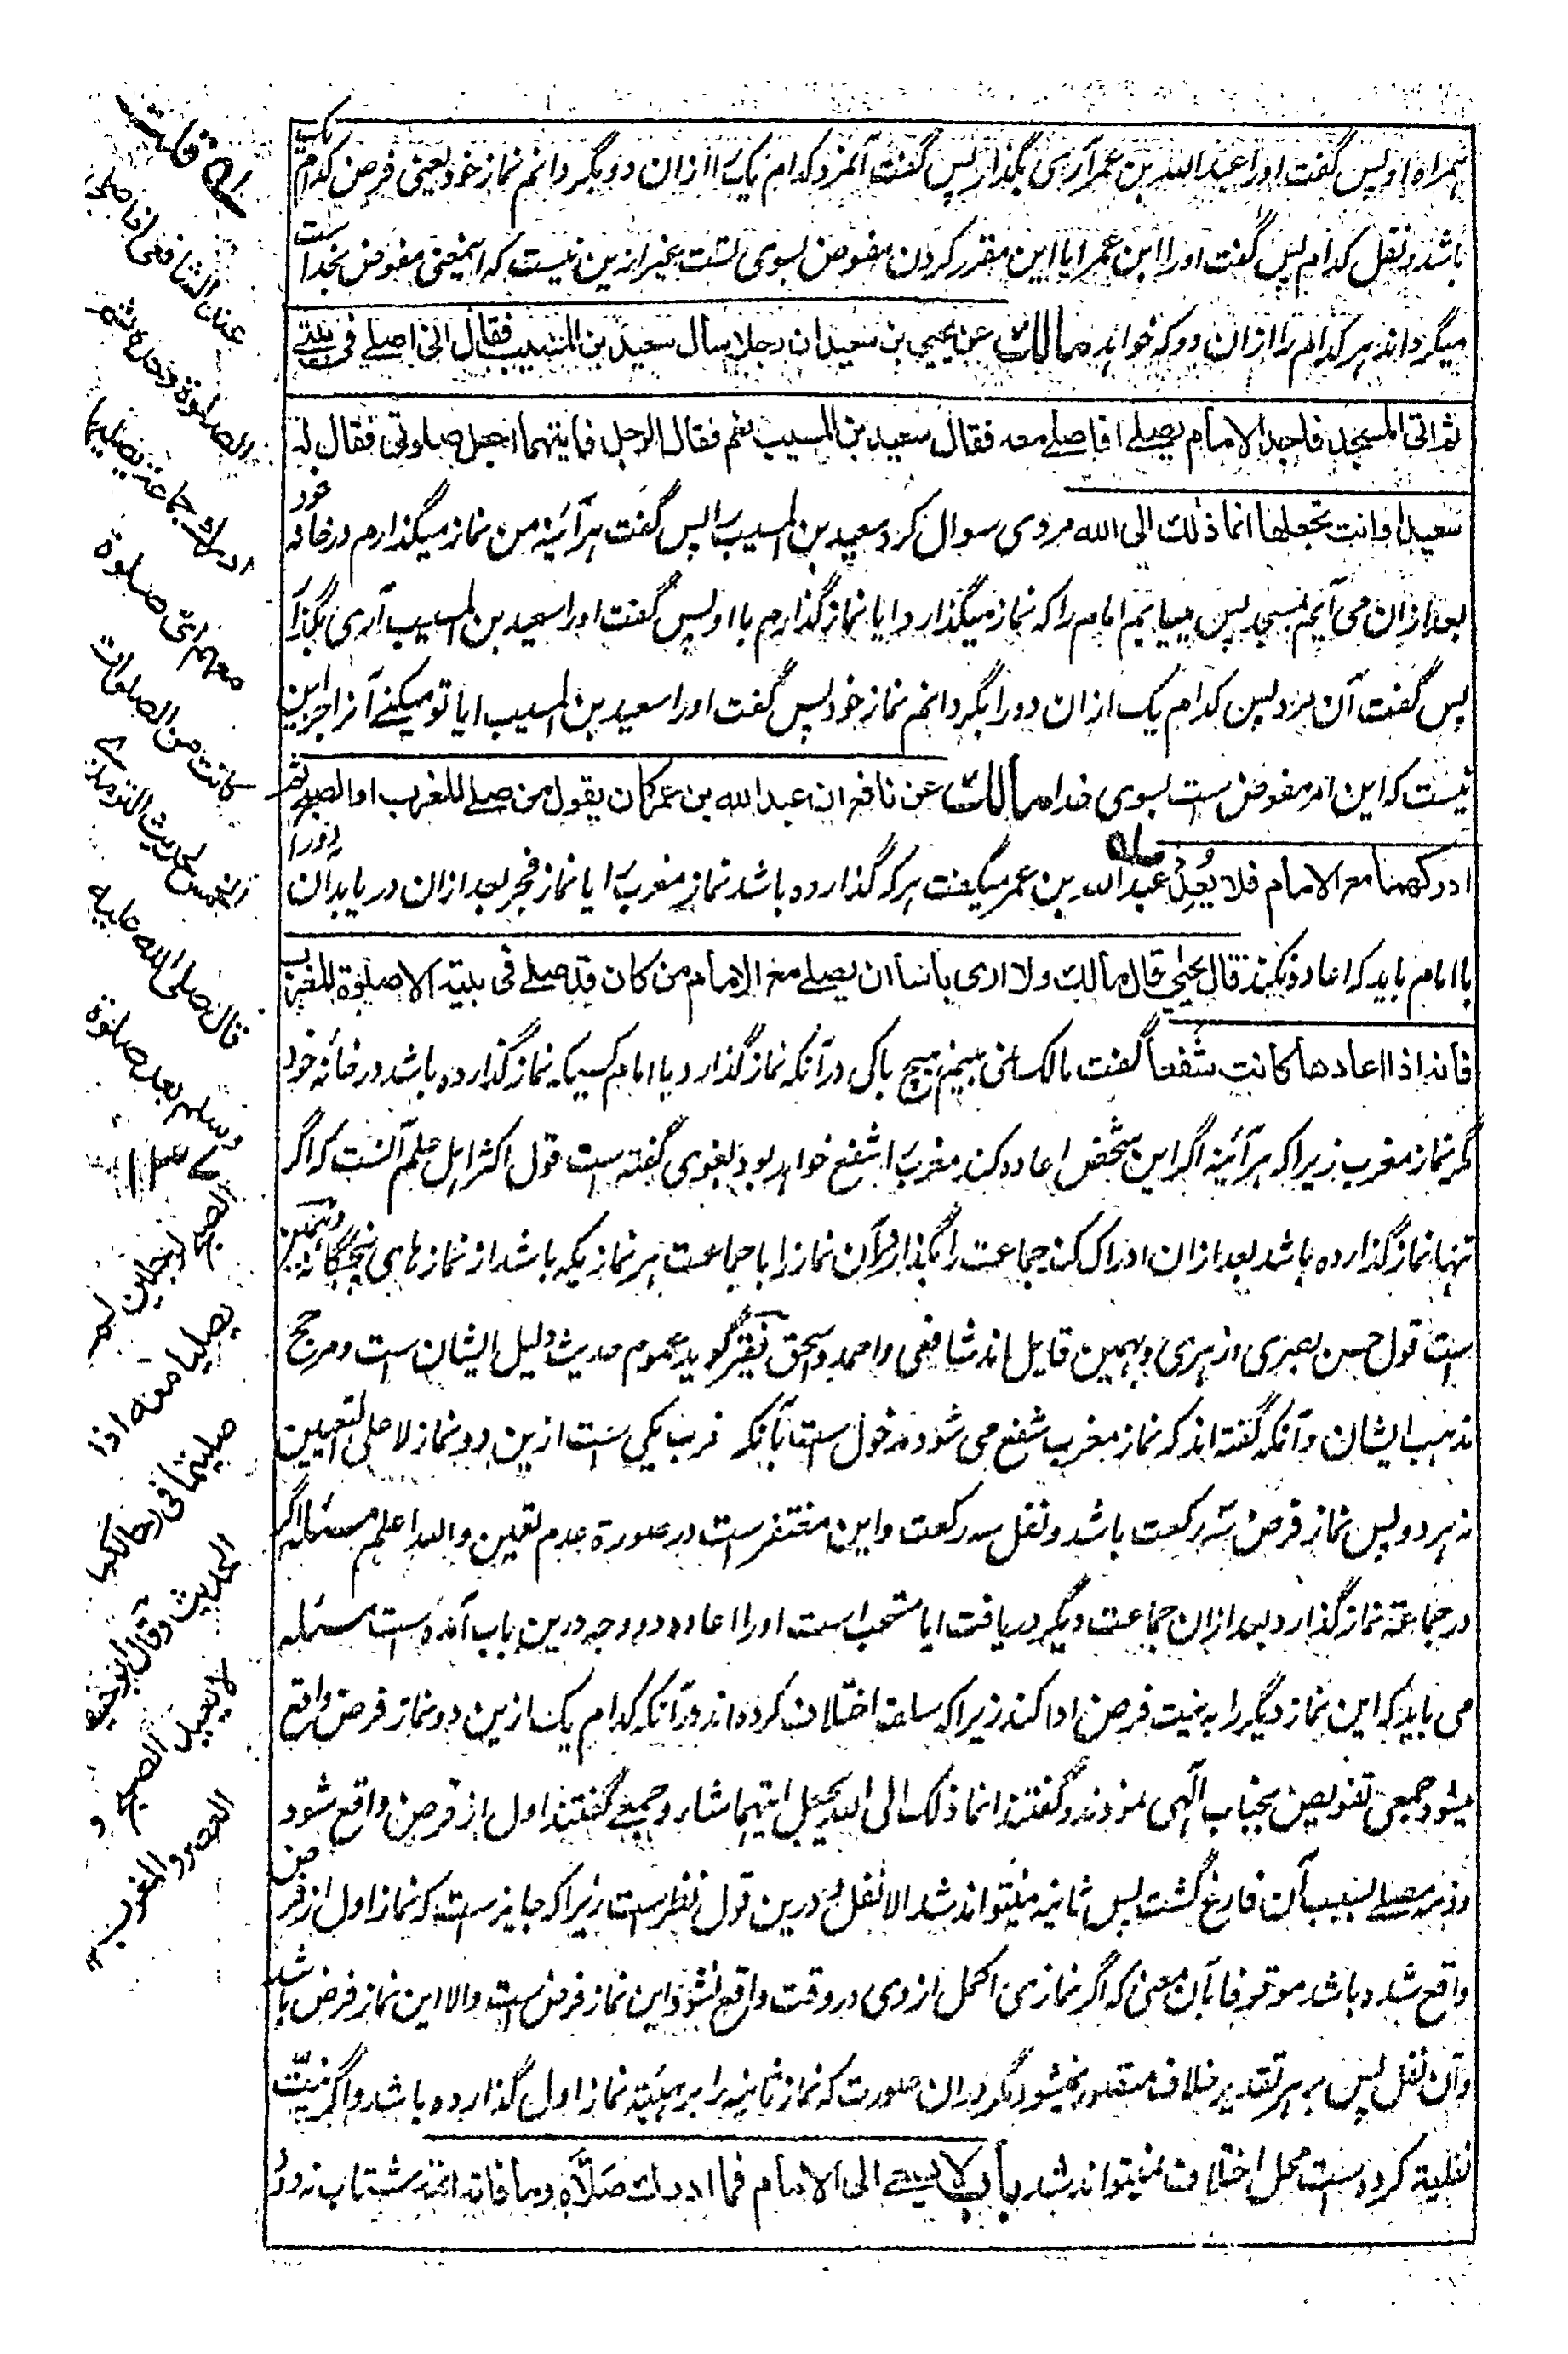 همراه او پس گفت اورا عبد الله بن عمر آری بگذار پس گفت آنمرد کدام یک را ازان دو بگردانم نماز خود یعنی فرض کدام یک
باشد و نفل کدام پس گفت اورا ابن عمر ایا این مقرر کردن مفوض بسوی تست غیر ازین نیست که اینمعنی مفوض بخدا ست
میگرداند هر کدام را ازان دو که خواهد مالك عن یحیی بن سعید ان رجلا سأل سعید بن المسیب فقال انی اصلے فی بیتے
ثم اتی المسجد فاجد الامام یصلے افاصلے معه فقال سعید بن المسیب نعم فقال الرجل فایتهما اجعل صلوتی فقال له
سعید او انت تجعلها انما ذلك الی الله مردی سوال کرد سعید بن المسیب را پس گفت هر آئینه من نماز میگذارم در خانه خود
بعد ازان می آیم بمسجد پس میابم امام را که نماز میگذارد ایا نماز گذارم با او پس گفت اورا سعید بن المسیب آری بگذار
پس گفت آن مرد پس کدام یک ازان دو را بگردانم نماز خود پس گفت اورا سعید بن المسیب ایا تو میکنے آنرا جز این
نیست که این امر مفوض ست بسوی خدا مالك عن نافع ان عبد الله بن عمر کان یقول من صلے المغرب او الصبح ثم
ادرکهما مع الامام فلا یعد عبد الله بن عمر میگفت هر که گذارده باشد نماز مغرب را یا نماز فجر بعد ازان دریابد آن دورا
با امام باید که اعاده نکند قال یحیی قال مالك ولا اری بأسا ان یصلے مع الامام من کان قد صلے فی بیته الا صلوة المغرب
فانه اذا اعادها کانت شفعا گفت مالک نمی بینم هیچ باکی در آنکه نماز گذارد با امام کسیکه نماز گذارده باشد در خانه خود
مگر نماز مغرب زیرا که هر آئینه اگر این شخص اعاده کند مغرب را شفع خواهد بود بغوی گفته ست قول اکثر اهل علم آنست که اگر
تنها نماز گذارده باشد بعد ازان ادراک کند جماعت را بگذارد آن نماز را با جماعت هر نمازیکه باشد از نمازهای پنجگانه و همین
ست قول حسن بصری و زهری و بهمین قایل اند شافعی و احمد و اسحق فقیر گوید عموم حدیث دلیل ایشان ست و مرجح
مذهب ایشان و آنکه گفته اند که نماز مغرب شفع می شود مدخول ست بآنکه فرض یکی ست ازین دو نماز لا علی التعیین
نه هر دو پس نماز فرض سه رکعت باشد و نفل سه رکعت و این مغتفر ست در صورة عدم تعیین و الله اعلم مسئله اگر
در جماعة نماز گذارد بعد ازان جماعت دیگر دریافت ایا مستحب است اورا اعاده دو وجه درین باب آمده ست مسئله
می باید که این نماز دیگر را به نیت فرض ادا کند زیرا که سلف اختلاف کرده اند در آنکه کدام یک ازین دو نماز فرض واقع
میشود جمعی تفویض بجناب الهی نمودند و گفتند انما ذلک الی الله یجعل ایتهما شاء و جمعے گفتند اول از فرض واقع شود
و ذمه مصلے بسبب آن فارغ گشت پس ثانیه نمیتواند شد الا نفل و درین قول نظر ست زیرا که جایز ست که نماز اول از فرض
واقع شده باشد موقوفا بآن معنی که اگر نمازی اکمل از وی در وقت واقع نشود این نماز فرض ست والا این نماز فرض باشد
و آن نفل پس بر هر تقدیر خلاف متصور نمیشود مگر دران صورت که نماز ثانیه را بر هیئة نماز اول گذارده باشد و اگر نیت
نفلیة کرده ست محل اختلاف نمیتواند شد باب لا یسعے الی الامام فما ادرك صلاه وما فاته اتمه شتاب نه رود
له قلت
عند الشافعی اذا صلی
الصلوة وحده ثم
ادرك جماعة یصلیها
معهم ای صلوة
کانت من الصلوات
الخمس لحدیث الترمذے
قال صلی الله علیه
وسلم بعد صلوة
الصبح لرجلین لم
یصلیا معه اذا
صلیتما فی رحالکما
الحدیث وقال ابو حنیفة
لا یعید الصبح و
العصر والمغرب